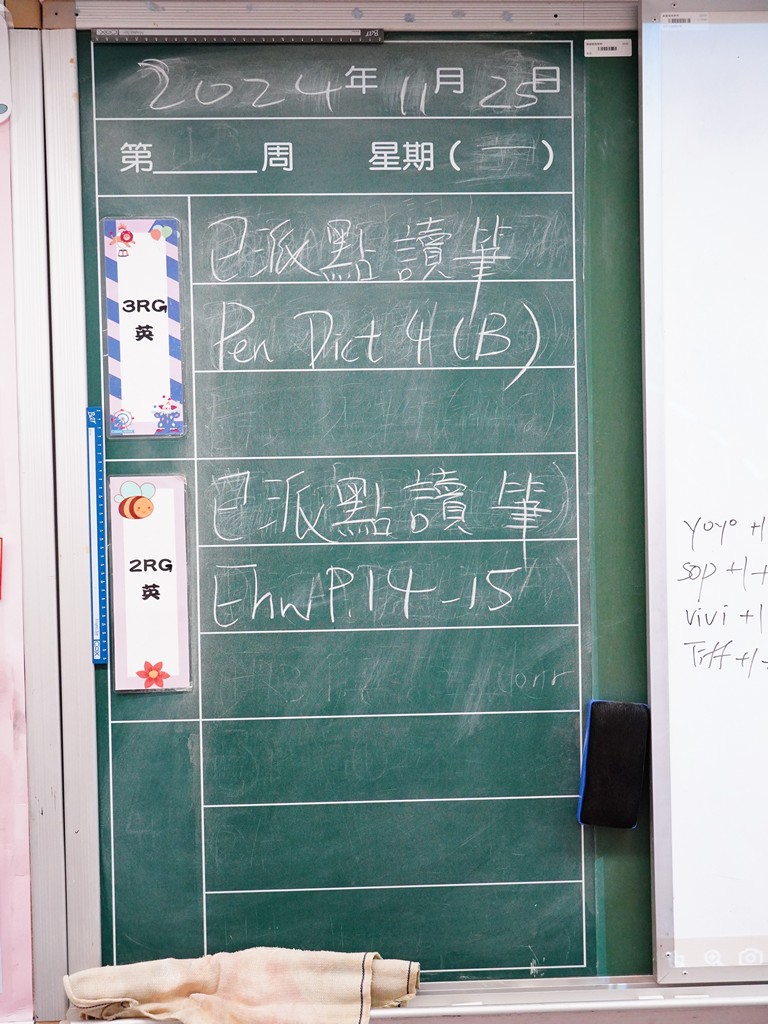 2024年11月25日
第____周 星期(一)
已派點讀筆
3RG
英
Pen Dict 4 (B)
已派點讀筆
2RG
英
Ehw P.14-15
yoyo +1
sop +1+
vivi +1
Tiff +1+